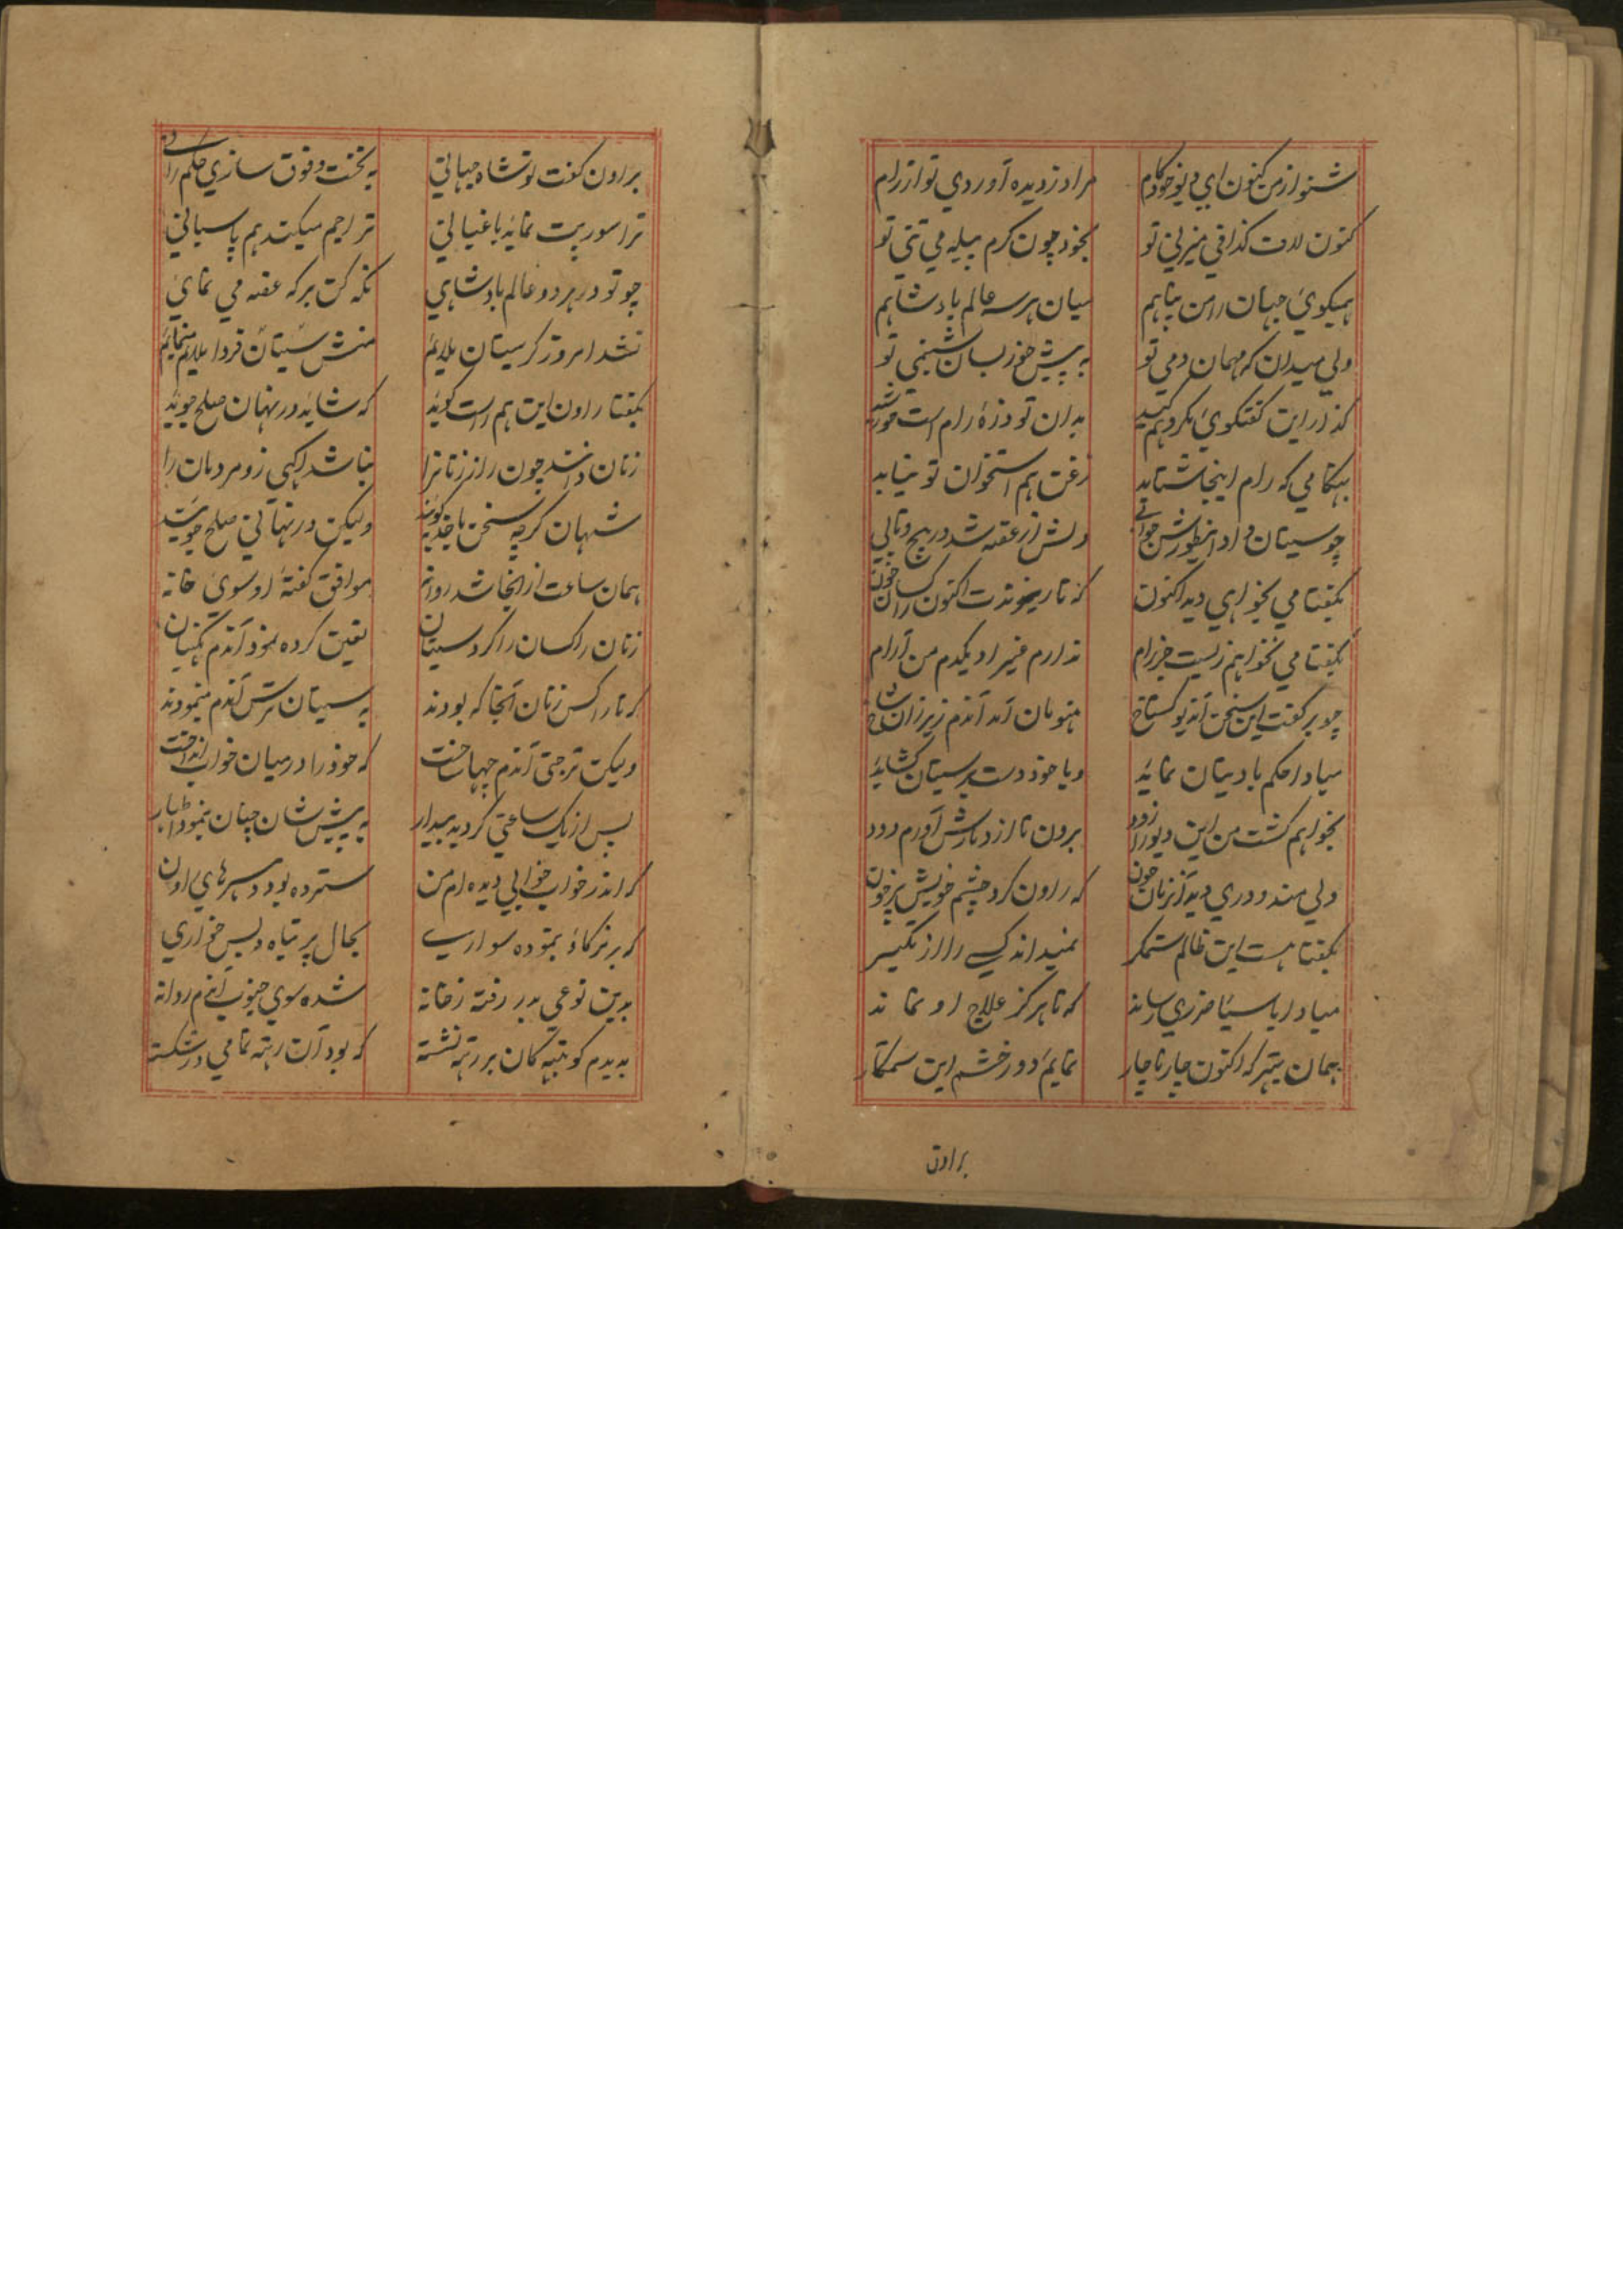 شنو از من کنون اي ديو خودکام مرا دزديده آوردي تو از رام
کنون لاف گذافي ميزني تو بخود چون کرم پيله مي تني تو
هميگوئي جهان را من پناهم ميان هر سه عالم بادشاهم
ولي ميدان که مهمان دمي تو به پيش خور بسان شبنمي تو
گذر از اين گفتگوي بدان تو ذرهٔ رام است
بهنگامي که رام اينجا شتابد زغن هم استخوان تو نيابد
چو سيتان داد دلش از غصه شد در پيچ و تابي
بگفتا مي بخواهي ديد اکنون اکنون
بگفتا مي نخواهم زيست جز رام ندارم غير او يکدم من آرام
چو بر گفت اين سخن آن ديو گستاخ هنومان آمد آندم زير آن شاخ
مبادا حکم با ديتان نمايد ويا خود دست بر سيتان گشايد
بخواهم کشت من اين ديو را زود برون تا از دمارش آورم دود
ولي مندودري ديد آنزمان چون که راون کرد چشم خويش پرخون
بگفتا هست اين ظالم ستمگر نميداند کسي را از
مبادا بر سيتا ضرري رساند که تا هرگز علاج او نماند
همان بهتر که اکنون چار ناچار نمايم دور خشم اين ستمکار
براون
براون گفت تو شاه جهاني به تخت و فوق سازي حکم راني
ترا سورپت نمايد باغباني ترا جم ميکند هم پاسباني
چو تو در هر دو عالم بادشاهي نگه کن بر که غصه مي نمائي
نشد امروز گر سيتان ملايم منش سيتان فردا ملايم
بگفتا راون اين هم راست گويد که شايد در نهان صلح جويد
زنان دانند چون راز زنانرا نباشد آگهي زو مردمان را
شهان گرچه سخن گويند وليکن در نهاني صلح جويند
همان ساعت از انجا شد روانه موافق گفتهٔ او سوي خانه
زنان راکسان را گرد سيتان تعين کرده نمود آندم نگهبان
که تا راکس زنان آنجا که بودند به سيتان ترس آندم مينمودند
وليکن ترجتي آندم چها ساخت که خود را در ميان خواب انداخت
پس از يک ساعتي گرديد بيدار به پيش شان چنان بنمود اظهار
که اندر خواب خوابي ديده ام من سترده بود سرهاي راون
که بر نرگاؤ بنموده سواري بحال پر تباه و بس خواري
بدين نوعي بدر رفته ز خانه شده سوي جنوب آندم روانه
بديدم کو بته کان بر رتهه نشسته که بود آن رتهه تمامي در شکسته